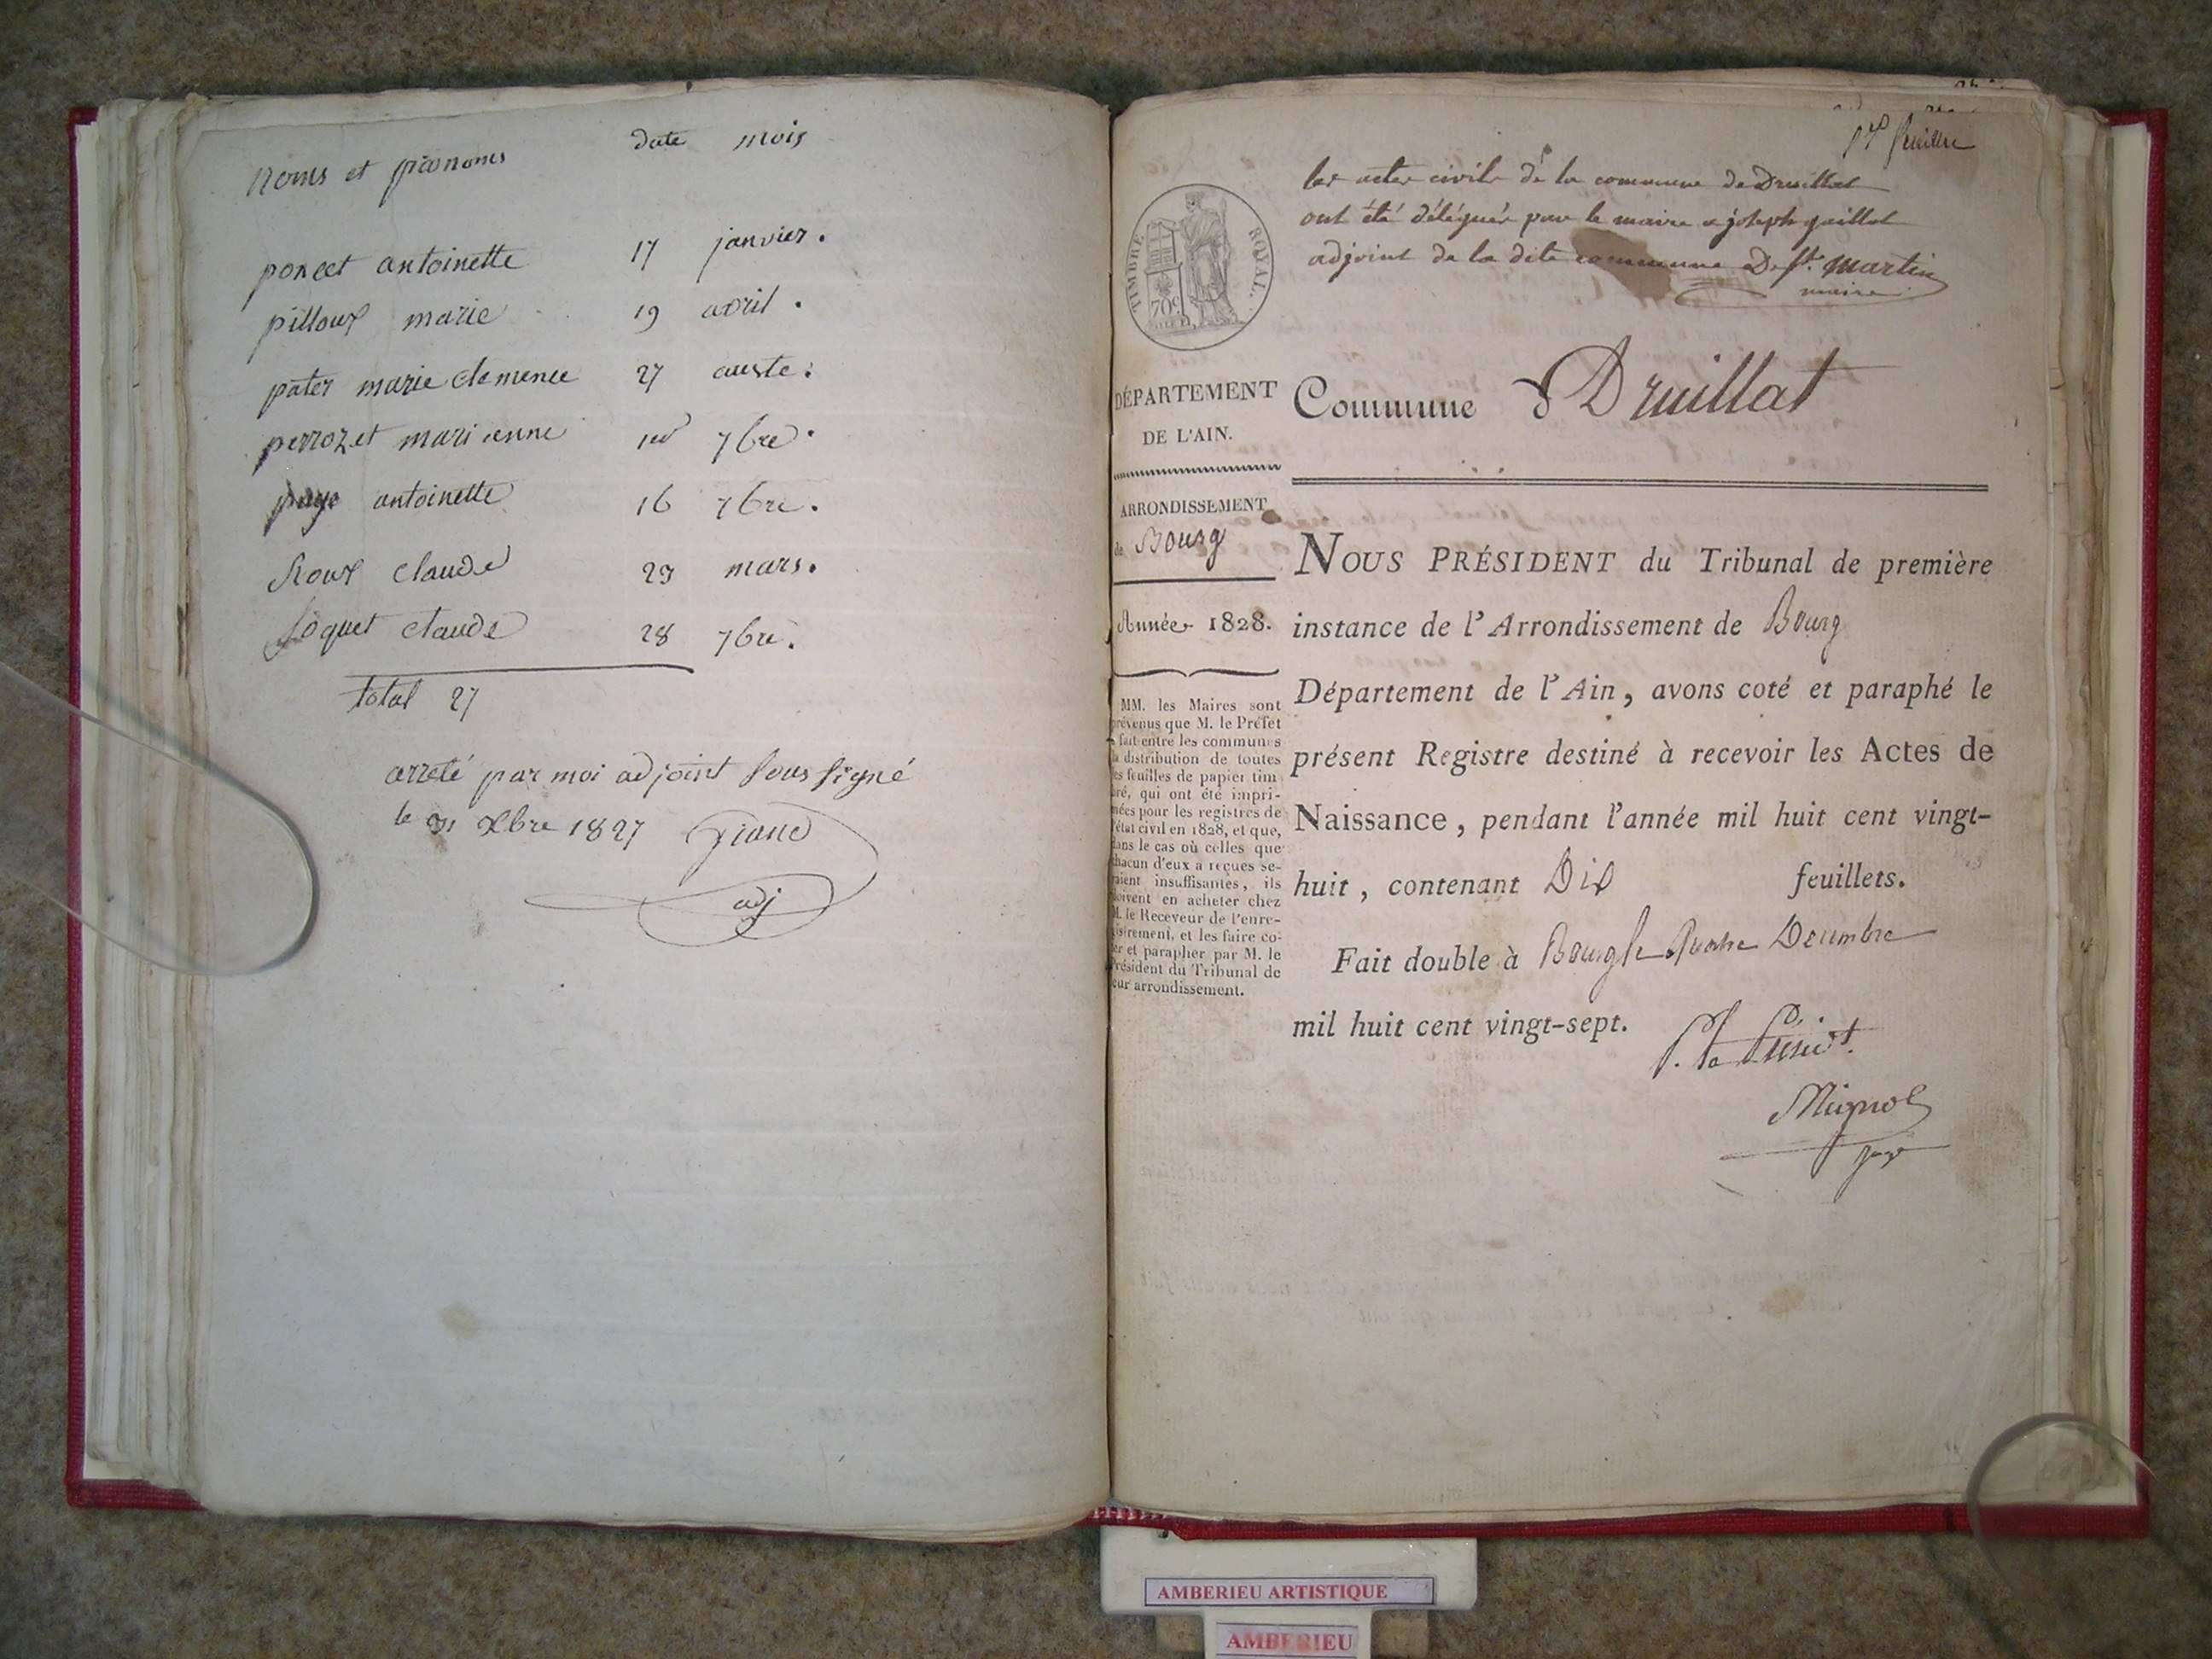 Noms et prénoms date mois
poncet antoinette 17 janvier.
pilloux marie 19 avril.
pater marie clemence 27 auste.
perrozet marienne 1er 7bre.
paye antoinette 16 7bre.
Roux claude 29 mars.
Soquet claude 28 7bre.
total 27
arreté par moi adjoint soussigné
le 31 Xbre 1827
adj
1er feuillet
les actes civils de la commune de Druillat
ont été délégués par le maire a joseph gaillot
adjoint de la dite commune D. St. martin
maire
TIMBRE ROYAL.
70c
DÉPARTEMENT
DE L'AIN.
ARRONDISSEMENT
de Bourg
Année 1828.
MM. les Maires sont
prévenus que M. le Préfet
a fait entre les communes
la distribution de toutes
les feuilles de papier tim
bré, qui ont été impri-
mées pour les registres de
l'état civil en 1828, et que,
dans le cas où celles que
chacun d'eux a reçues se-
raient insuffisantes, ils
doivent en acheter chez
M. le Receveur de l'enre-
gistrement, et les faire co-
ter et parapher par M. le
Président du Tribunal de
leur arrondissement.
Commune d Druillat
NOUS PRÉSIDENT du Tribunal de première
instance de l'Arrondissement de Bourg
Département de l'Ain, avons coté et paraphé le
présent Registre destiné à recevoir les Actes de
Naissance, pendant l'année mil huit cent vingt-
huit, contenant Dix feuillets.
Fait double à Bourg le Quatre Decembre
mil huit cent vingt-sept.
P. le Présidt.
Mignol
juge
AMBERIEU ARTISTIQUE
AMBERIEU